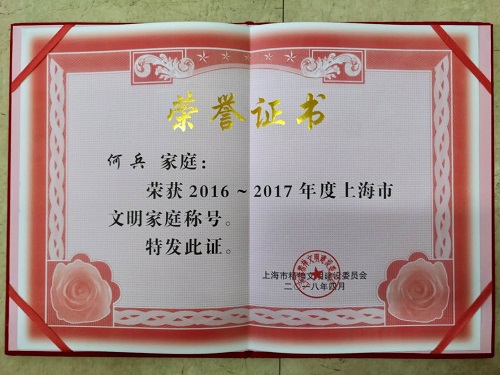 荣誉证书
何兵 家庭：
荣获 2016～2017 年度上海市
文明家庭称号。
特发此证。
上海市精神文明建设委员会
二〇一八年四月